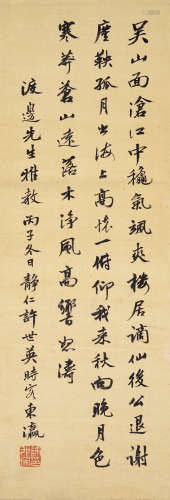 吴山面滄江中龝氣颯爽楼居謫仙後公退謝
塵鞅孤月出海上高懷一俯仰我來秋向晚月色
寒莽蒼山遠落木浄風高響怒濤
渡邊先生雅教丙子冬日静仁許世英時客東瀛